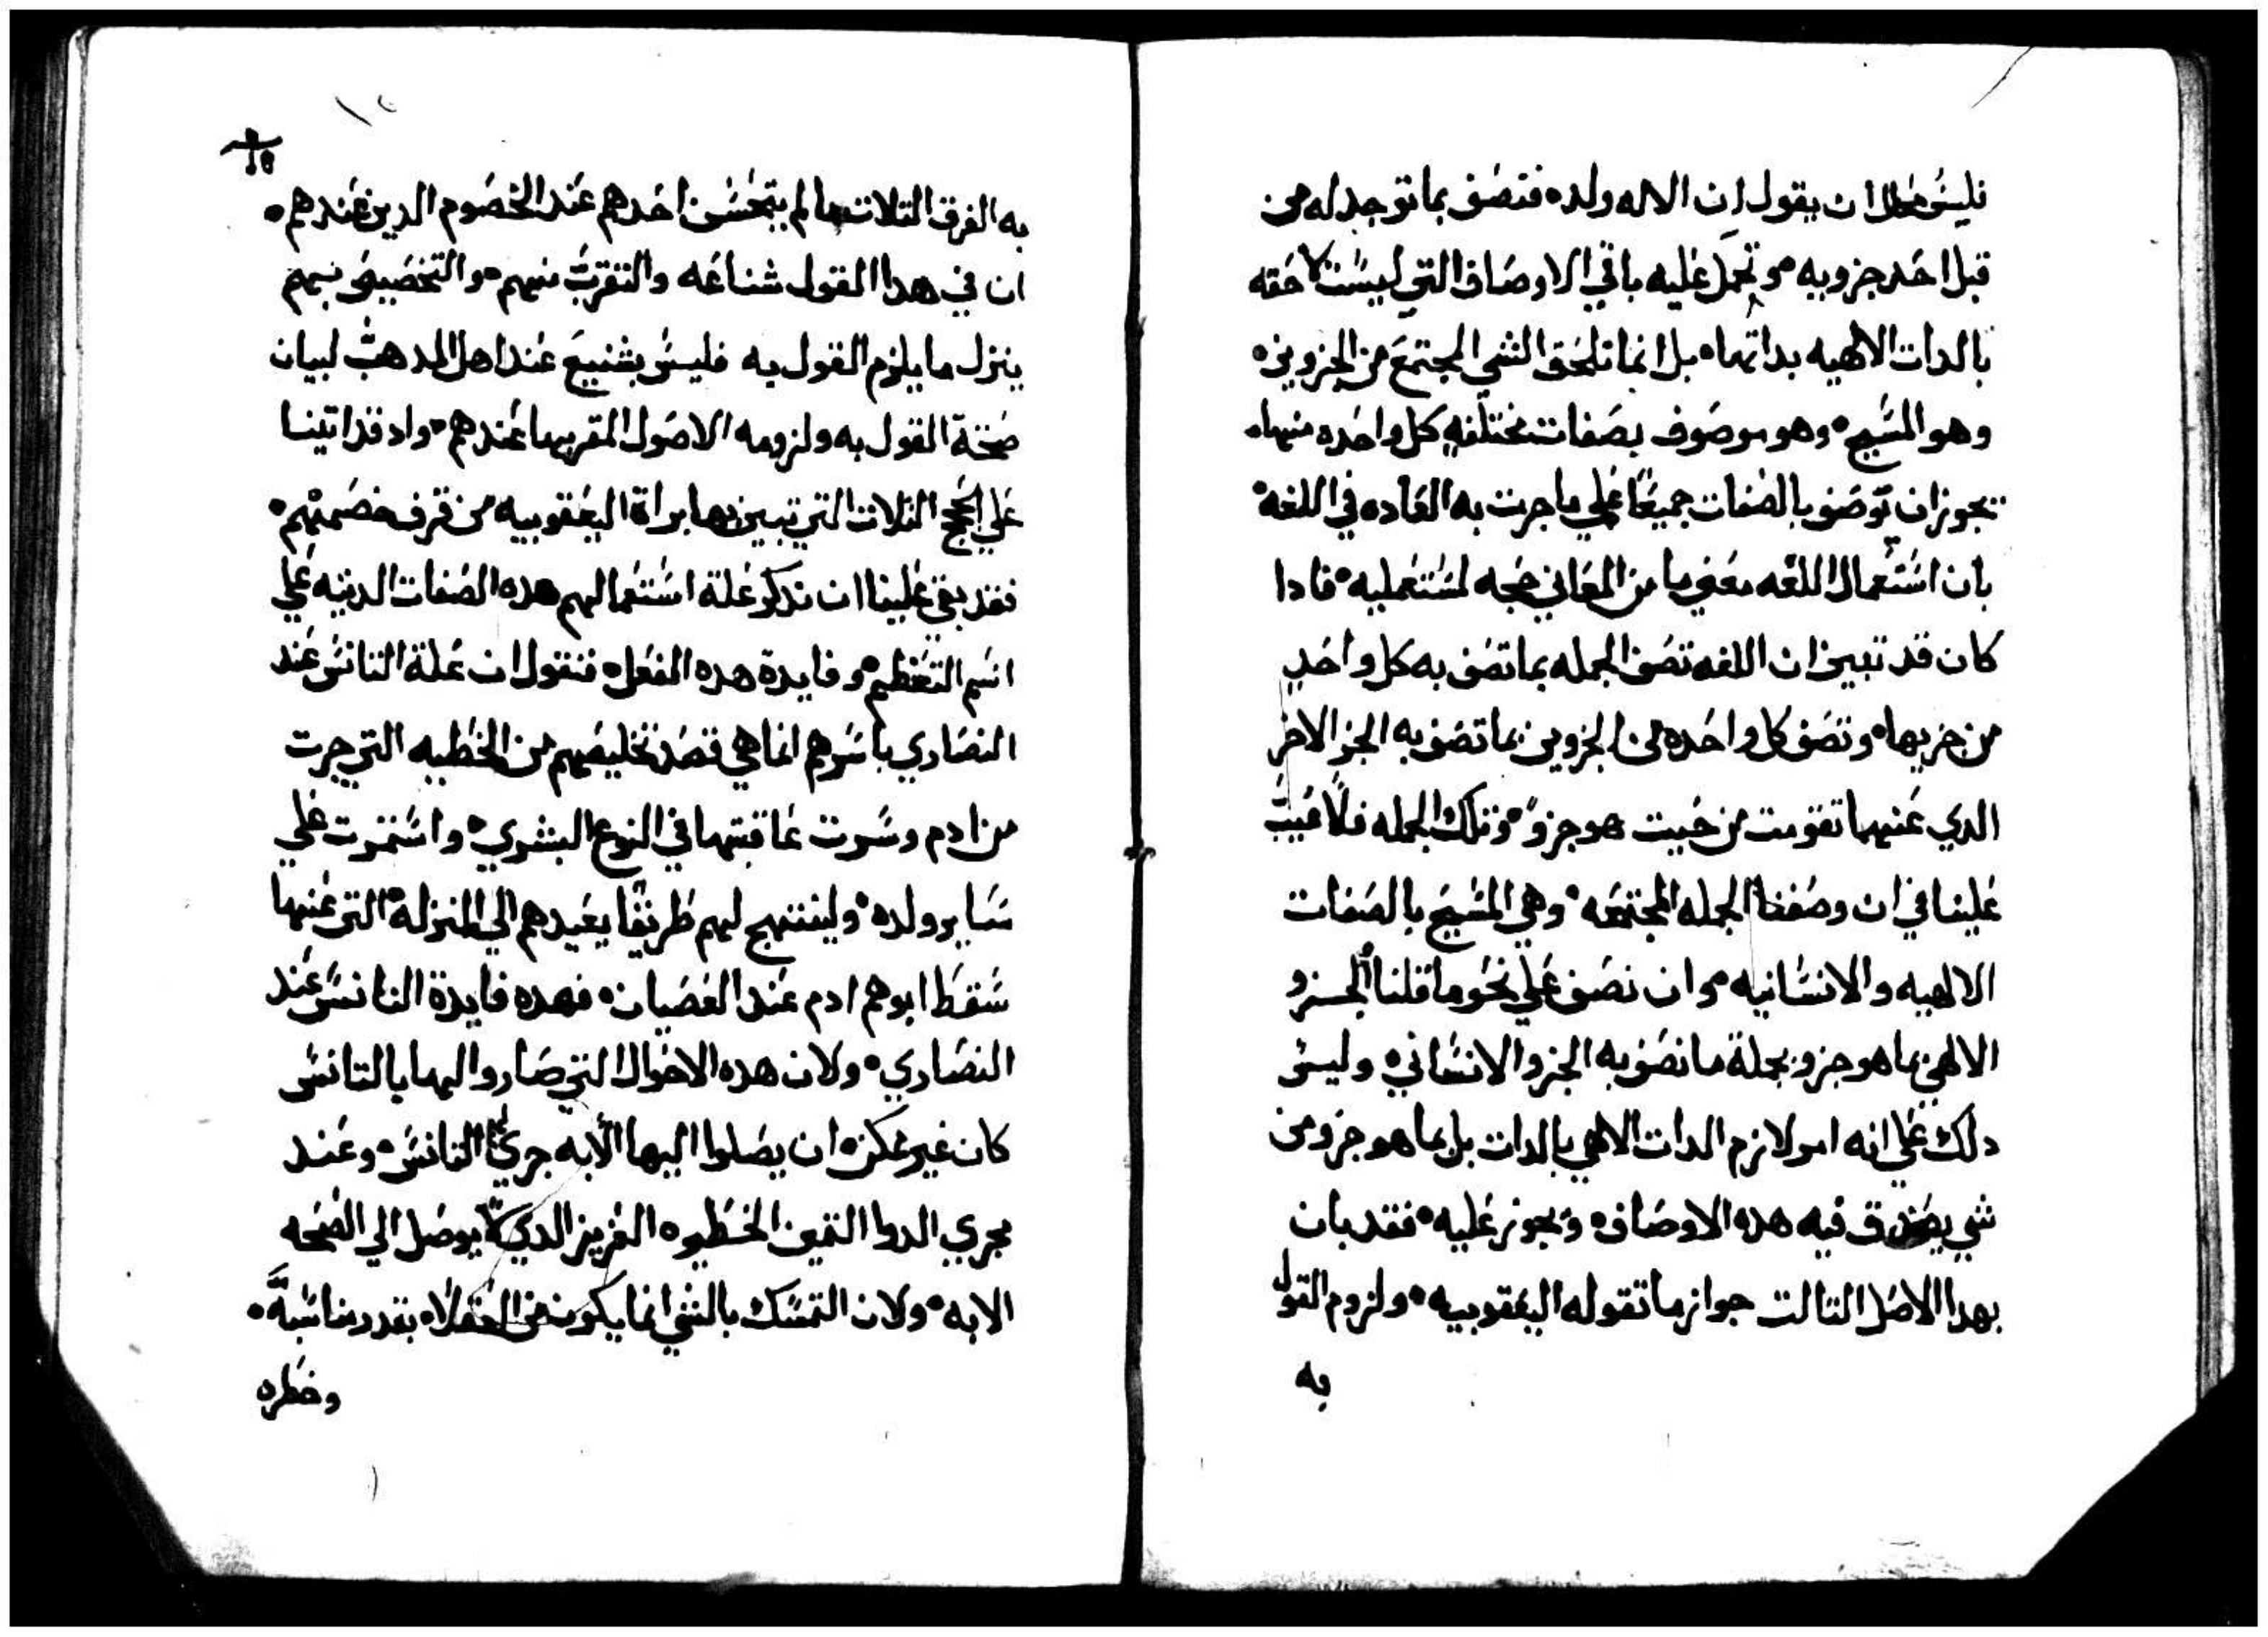 فليس محال ان يقول ان الاله ولده فتصف بما توجد له من
قبل احد جزويه وتحمل عليه باقي الاوصاف التي ليست لاحقه
بالدات الالهيه بداتها بل انما تلحق الشي المجتمع من الجزوين
وهو المسيح وهو موصوف بصفات مختلفه كل واحده منها
يجوز ان توصف بالصفات جميعًا علي ما جرت به العاده في اللغه
بان استعمال اللغه معني ما من المعاني حجه لمستعمليه فادا
كان قد تبين ان اللغه تصف الجمله بما تصف به كل واحد
من جزيها وتصف كل واحده من الجزوين بما تصف به الجز الاخر
الدي عنهما تقومت من حيت هو جزوً وتلك الجمله فلا عيب
علينا في ان وصفنا الجمله المجتمعه وهي المسيح بالصفات
الالهيه والانسانيه وان نصف علي نحو ما قلنا الجزو
الالهي بما هو جزو بجملة ما نصف به الجزو الانساني وليس
دلك علي انه امر لازم الدات الالهي بالدات بل بما هو جزو من
شي يصدق فيه هده الاوصاف ويجوز عليه فقد بان
بهدا الاصل التالت جواز ما تقوله اليعقوبيه ولزوم القول
به
١٥
به الفرق التلات ما لم يتحسن احدهم عند الخصوم الدين عندهم
ان في هدا القول شناعه والتقرب منهم والتخصيص بهم
ينزل ما يلزم القول به فليس بشنيع عند اهل المدهب لبيان
صحة القول به ولزومه الاصول المقر بها عندهم واد قد اتينا
علي الحجج التلات التي تبين بها براة اليعقوبيه من قرف خصمهم
فقد بقي علينا ان ندكر علة استعمالهم هده الصفات الدنيه علي
اسم التعظيم وفايدة هده الفعل فنقول ان علة التانس عند
النصاري باسرهم انما هي قصد تخليصهم من الخطيه التي جرت
من ادم وسرت عاقبتها في النوع البشري واستمرت علي
ساير ولده ولينتهج لهم طريقًا يعيدهم الي المنزله التي عنها
سقط ابوهم ادم عند العصيان فهده فايدة التانس عند
النصاري ولان هده الاحوال التي صاروا اليها بالتانس
كان غير ممكن ان يصلوا اليها الابه جري التانس وعند
مجري الدوا التمين الخطير العزيز الدي لا يوصل الي الصحه
الابه ولان التمسك بالشي انما يكون من العقلاء بقدر مناسبة
وخطره